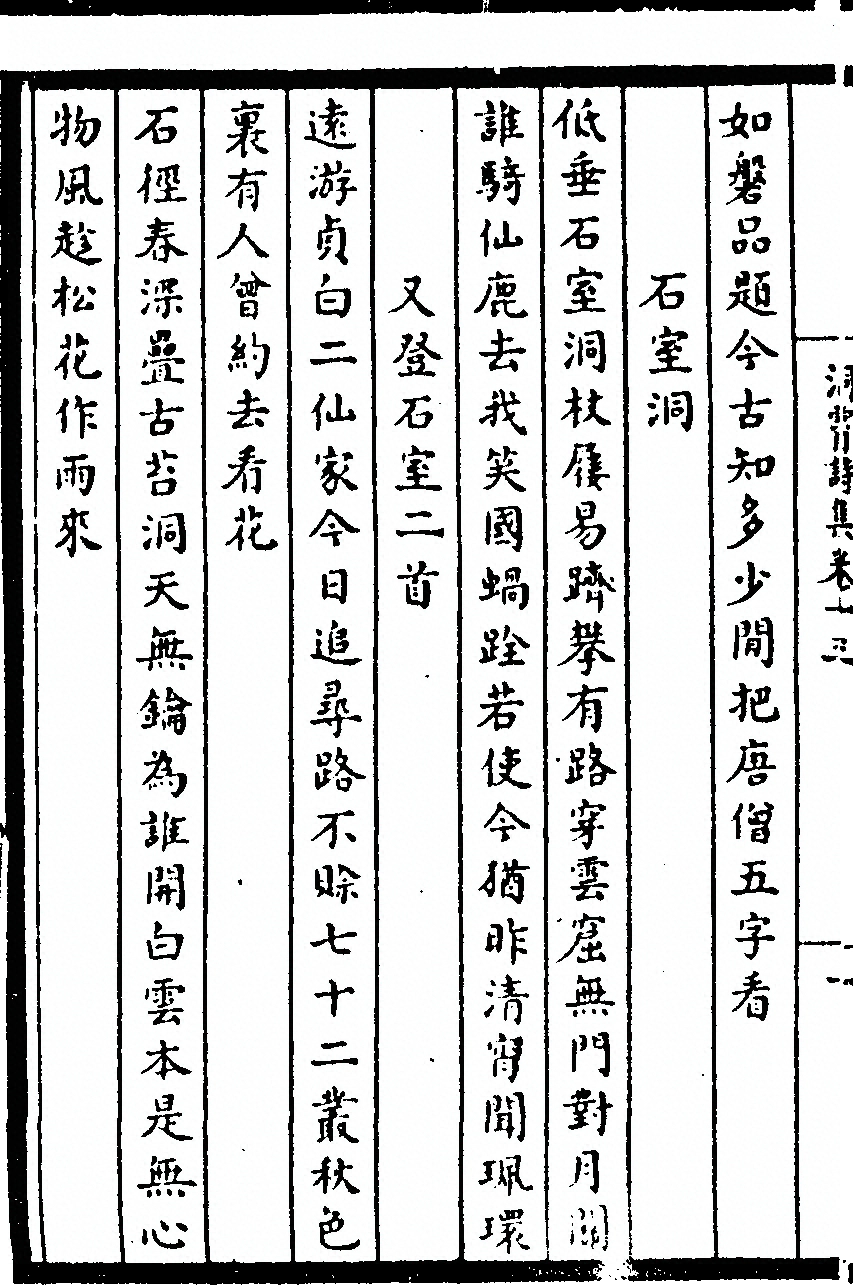 如盤品題今古知多少閒把唐僧五字看
石室洞
低垂石室洞杖屨易躋攀有路穿雲窟無門對月關
誰騎仙鹿去我笑國蝸跧若使今猶昨清宵聞珮環
又登石室二首
遠游貞白二仙家今日追尋路不賒七十二叢秋色
裏有人曾約去看花
石徑春深疊古苔洞天無鑰為誰開白雲本是無心
物風趁松花作雨來
詩集卷七